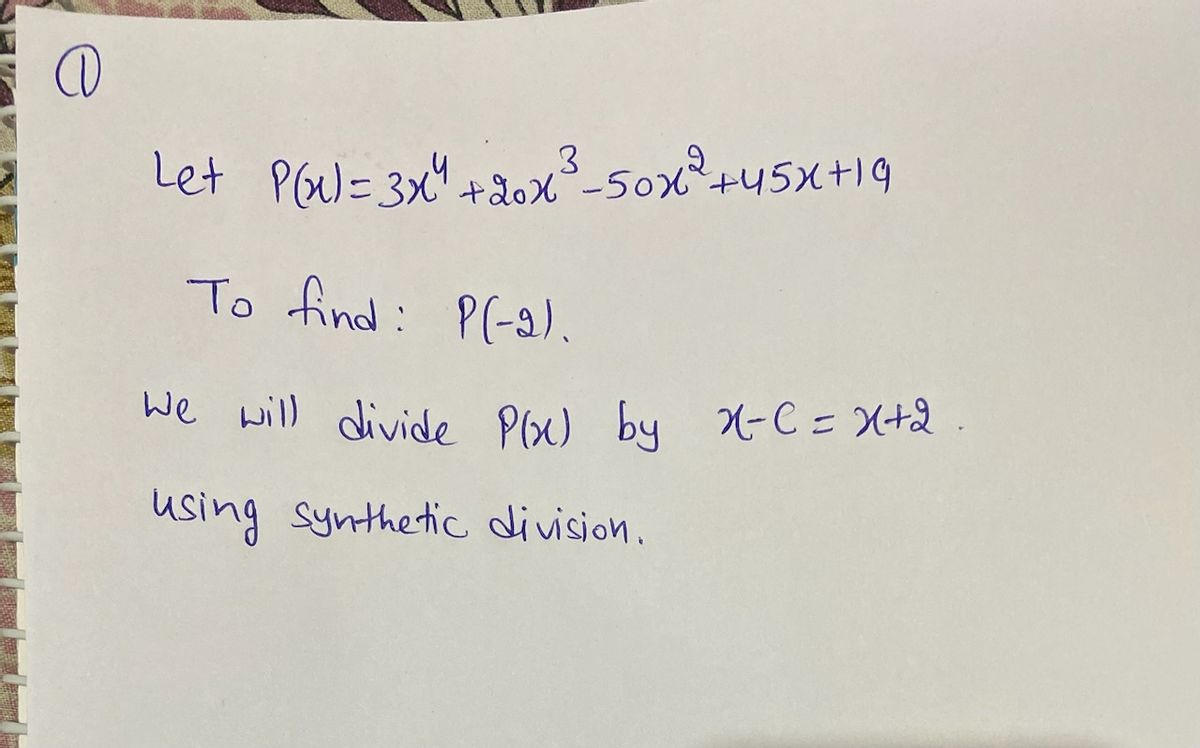 ①
Let P(x)=3x⁴+20x³-50x²+45x+19
To find: P(-2).
We will divide P(x) by x-C=x+2.
using synthetic division.